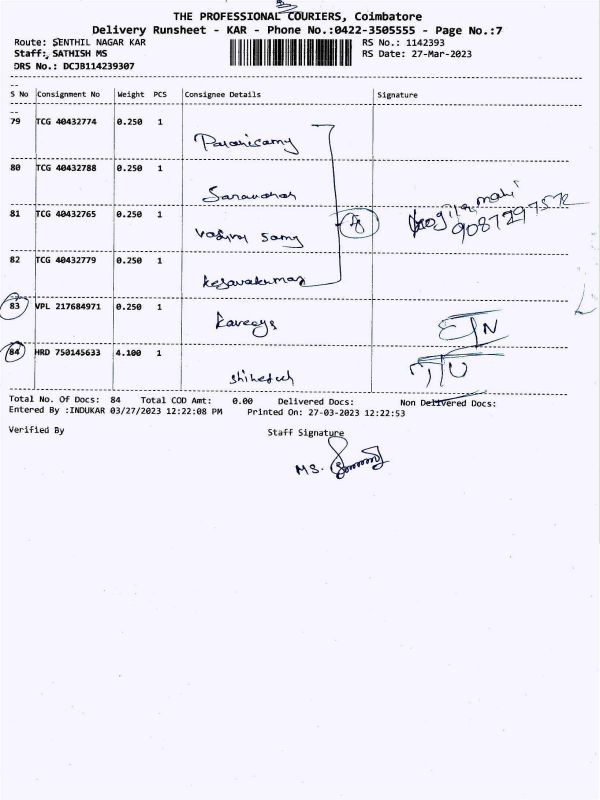 THE PROFESSIONAL COURIERS, Coimbatore
Delivery Runsheet - KAR - Phone No.:0422-3505555 - Page No.:7
Route: SENTHIL NAGAR KAR
RS No.: 1142393
Staff: SATHISH MS
RS Date: 27-Mar-2023
DRS No.: DCJB114239307
S No Consignment No Weight PCS Consignee Details Signature
79 TCG 40432774 0.250 1
Palanisamy
80 TCG 40432788 0.250 1
Saravanan
81 TCG 40432765 0.250 1
samy
9087297572
82 TCG 40432779 0.250 1
Kesavakumar
83 VPL 217684971 0.250 1
84 HRD 750145633 4.100 1
Total No. Of Docs: 84 Total COD Amt: 0.00 Delivered Docs: Non Delivered Docs:
Entered By :INDUKAR 03/27/2023 12:22:08 PM Printed On: 27-03-2023 12:22:53
Verified By Staff Signature
MS.